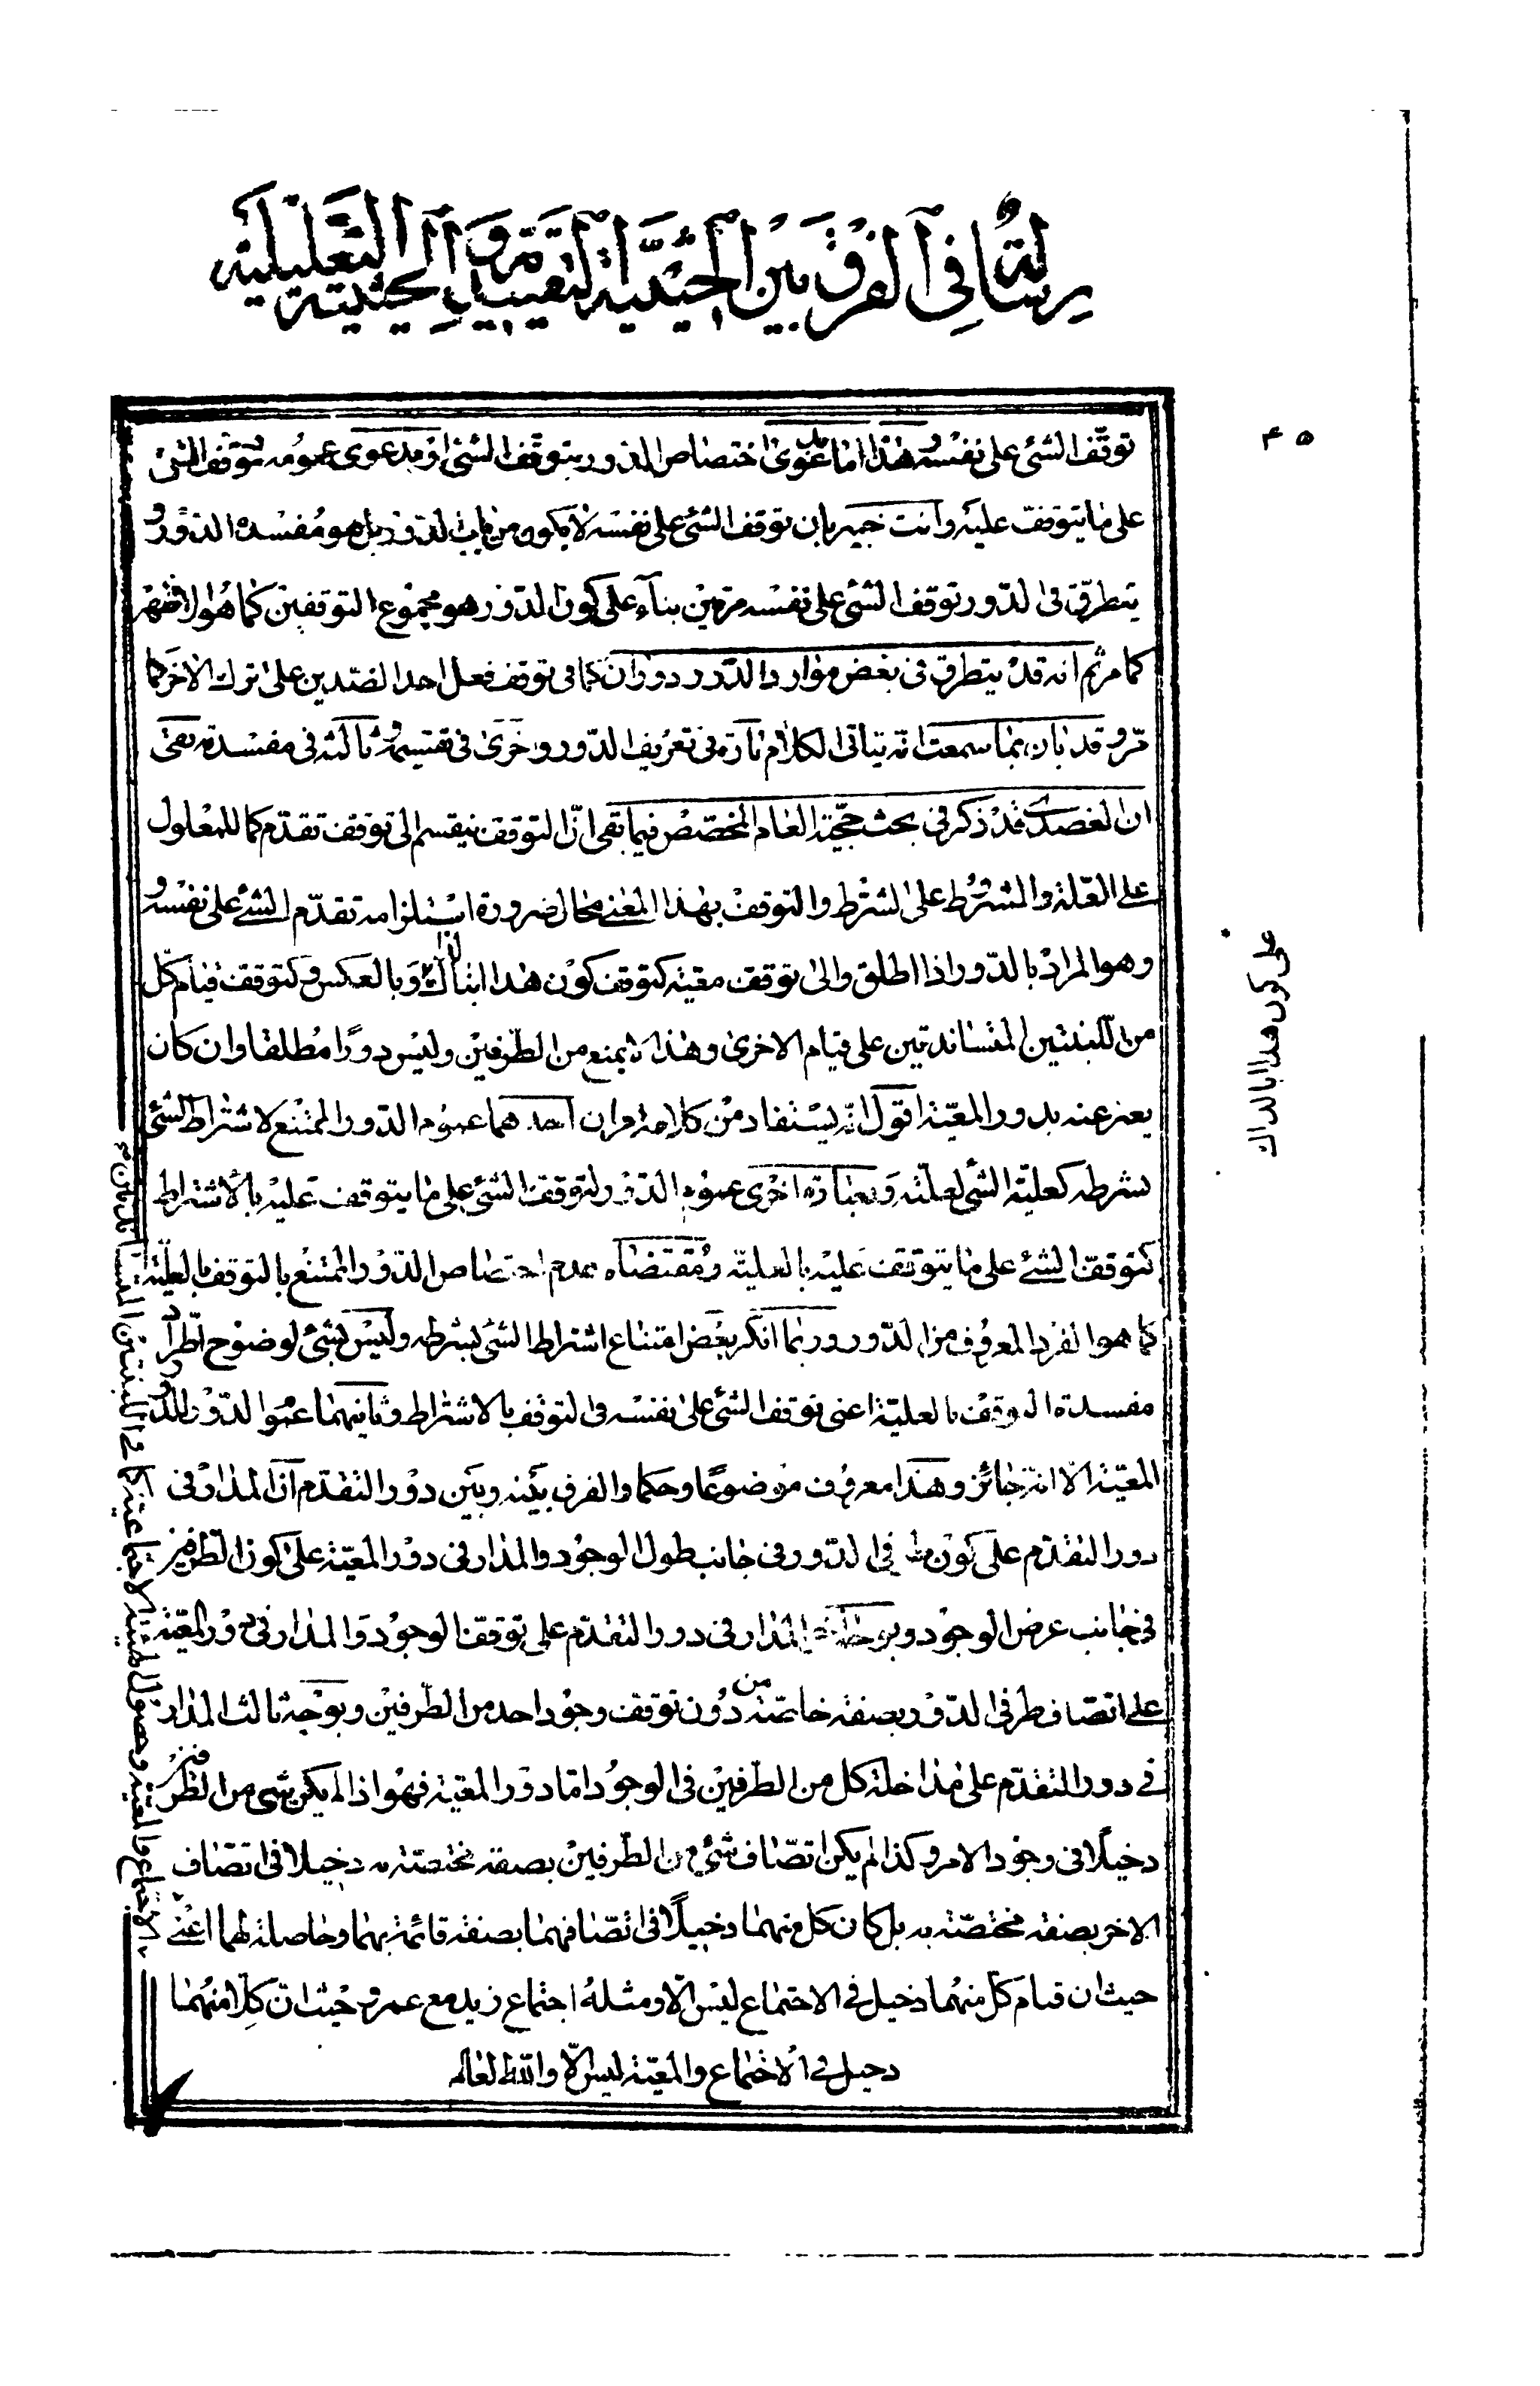 رسالة في الفرق بين الحيثية التقييدية والحيثية التعليلية
٤٥
توقّف الشئ على نفسه وهذا اما بدعوى اختصاص الدور بتوقّف الشئ او بدعوى عمومه لتوقف الشئ
على ما يتوقف عليه وانت خبير بان توقف الشئ على نفسه لا يكون من باب الدور بل هو مفسدة الدور و
يتطرق في الدور توقف الشئ على نفسه مرتين بناء على كون الدور هو مجموع التوقفين كما هو الاظهر
كما مر ثم انه قد يتطرق في بعض موارد الدور دوران كما في توقف فعل احد الضدين على ترك الاخر كما
مرّ وقد بان بما سمعت انه يتاتى الكلام تارة في تعريف الدور واخرى في تقسيمه وثالثة في مفسدته بقى
ان العضدى قد ذكر في بحث حجية العام المخصّص فيما بقى انّ التوقف ينقسم الى توقف تقدّم كما للمعلول
على العلّة والمشروط على الشرط والتوقف بهذا المعنى محال ضرورة استلزامه تقدّم الشئ على نفسه و
وهو المراد بالدور اذا اطلق والى توقف معيّة كتوقف كون هذا ابنا لذاك وبالعكس وكتوقف قيام كل
على كون هذا ابا لذاك
من اللبنتين المتساندتين على قيام الاخرى وهذا لا يمنع من الطرفين وليس دورا مطلقا وان كان
يعبر عنه بدور المعيّة اقول انّه يستفاد من كلامه امران احدهما عموم الدور الممتنع لاشتراط الشئ
بشرطه كعليّة الشئ لعلّته وبعبارة اخرى عموم الدور لتوقف الشئ على ما يتوقف عليه بالاشتراط
كتوقف الشئ على ما يتوقف عليه بالعليّة ومقتضاه عدم اختصاص الدور الممتنع بالتوقف بالعليّة
كما هو الفرد المعروف من الدور وربما انكر بعض امتناع اشتراط الشئ بشرطه وليس بشئ لوضوح اطراد
مفسدة التوقف بالعليّة اعنى توقف الشئ على نفسه في التوقف بالاشتراط وثانيهما عموم الدور للدور
المعيّة الا انه جائز وهذا معروف موضوعا وحكما والفرق بينه وبين دور التقدّم انّ المدار في
دور التقدّم على كون طرفي الدور في جانب طول الوجود والمدار في دور المعيّة على كون الطرفين
في جانب عرض الوجود وبوجه اخر المدار في دور التقدّم على توقف الوجود والمدار في دور المعيّة
على اتصاف طرفي الدور بصفة خاصّة من دون توقف وجود احد من الطرفين وبوجه ثالث المدار
في دور التقدّم على مداخلة كل من الطرفين في الوجود امّا دور المعيّة فهو اذا لم يكن شئ من الطرفين
دخيلا في وجود الامر وكذا لم يكن اتصاف شئ من الطرفين بصفة مختصّة به دخيلا في اتصاف
الاخر بصفة مختصّة به بل كان كل منهما دخيلا في اتصافهما بصفة قائمة بهما وحاصلة لهما اعنى
الاجتماع والمعيّة وحصول الهيئة الاجتماعية كما في اللبنتين المتساندتين فان
حيث ان قيام كل منهما دخيل في الاجتماع ليس الّا ومثله اجتماع زيد مع عمرو حيث انّ كلّا منهما
دخيل في الاجتماع والمعيّة ليس الّا والله العالم